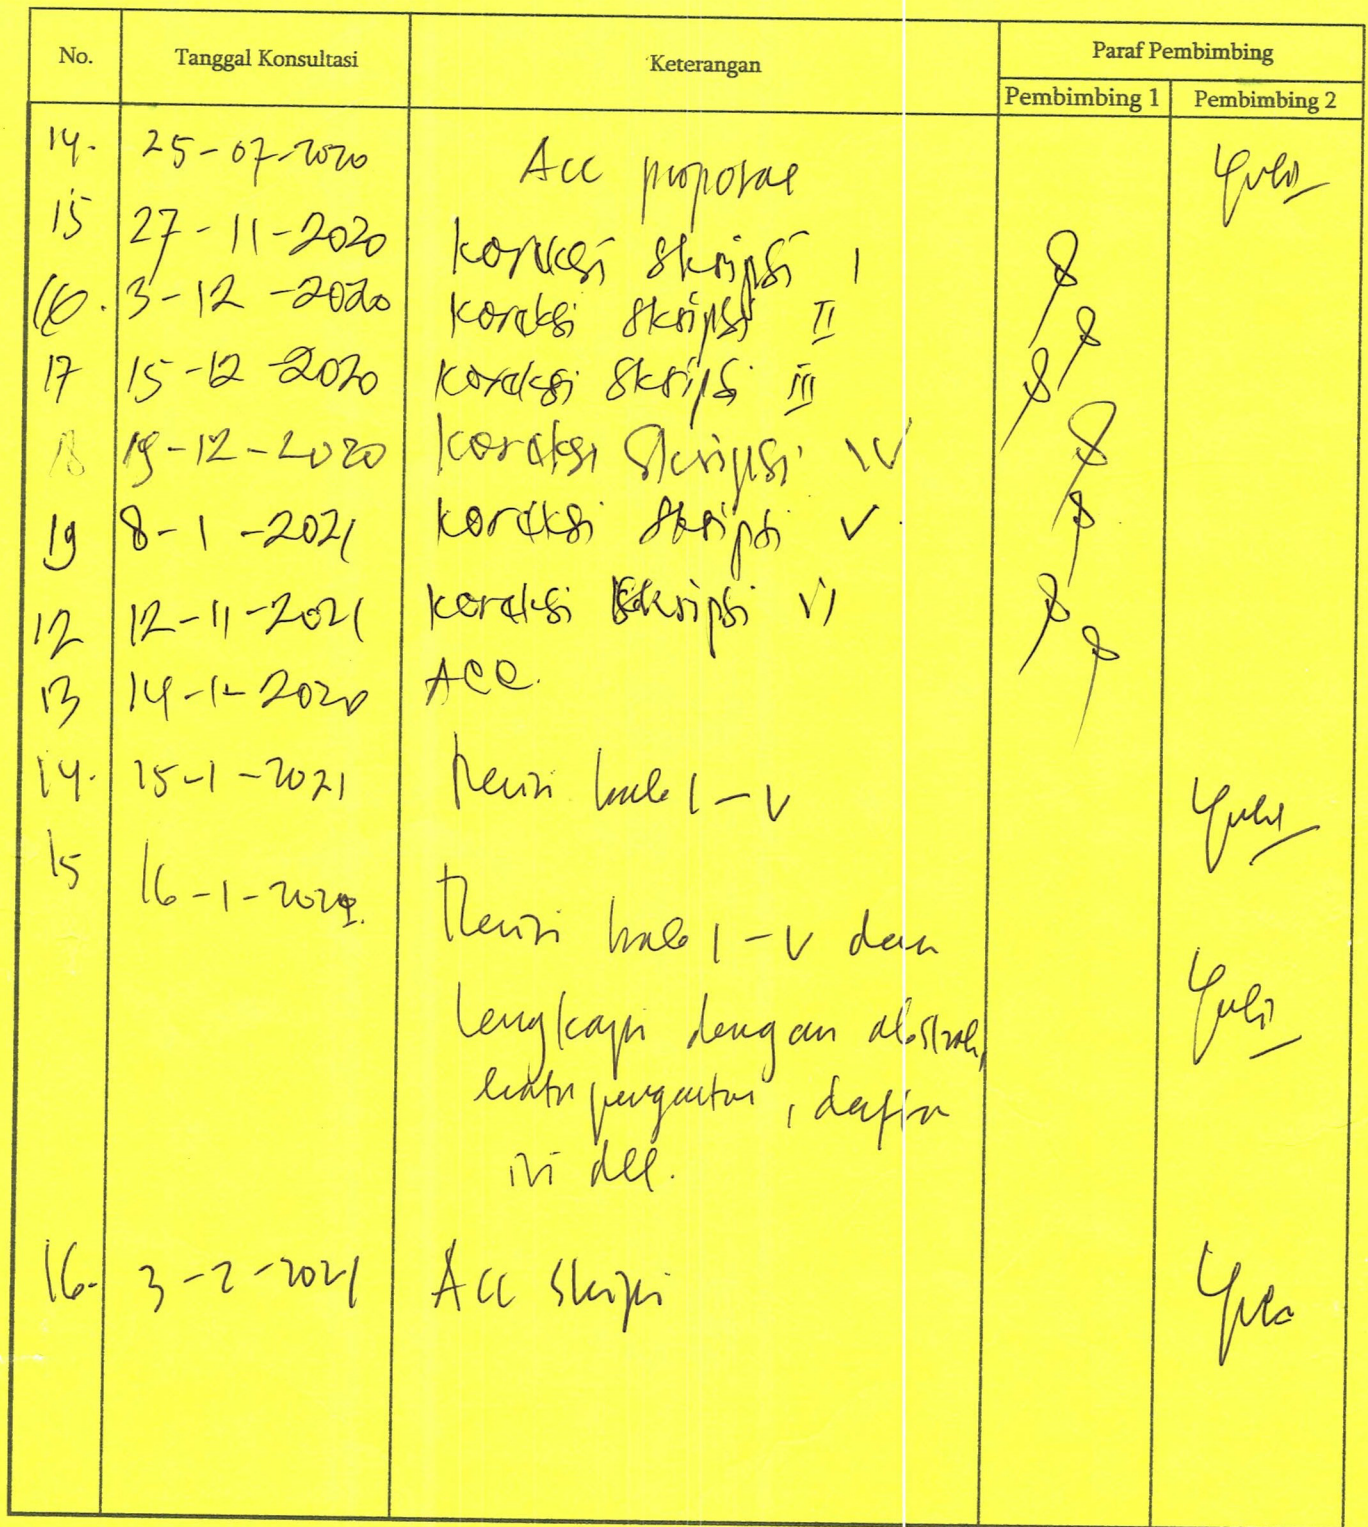 No. Tanggal Konsultasi Keterangan Paraf Pembimbing
Pembimbing 1 Pembimbing 2
14. 25-07-2020 Acc proposal Yuli
15 27-11-2020 koreksi skripsi I
16. 3-12-2020 koreksi skripsi II
17 15-12-2020 koreksi skripsi III
18 19-12-2020 koreksi skripsi IV
19 8-1-2021 koreksi skripsi V
12 12-11-2021 koreksi skripsi VI
13 14-1-2020 Acc.
14. 15-1-2021 Revisi bab I-V Yuli
15 16-1-2021. Revisi bab I-V dan Yuli
lengkapi dengan abstrak,
kata pengantar, daftar
isi dll.
16. 3-2-2021 Acc skripsi